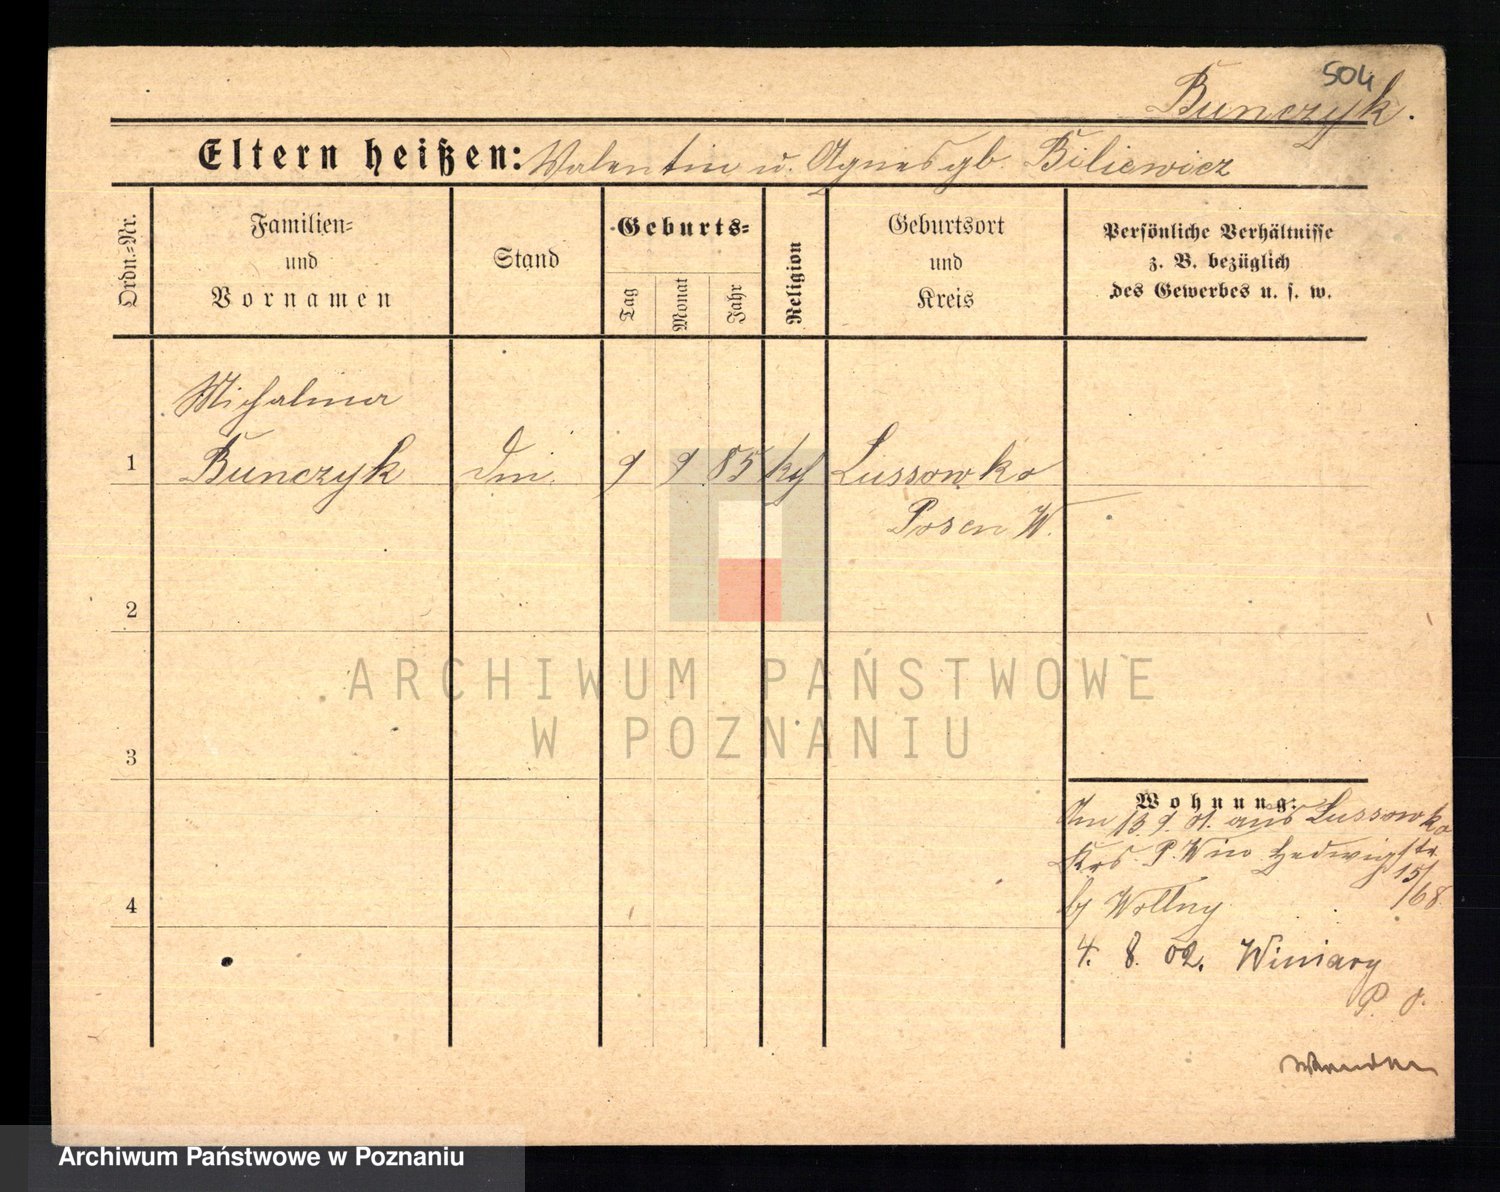 504
Bunczyk.
Eltern heißen: Valentin u. Agnes gb. Biliewicz
Ordn.-Nr.
Familien-
und
Vornamen
Stand
Geburts-
Tag
Monat
Jahr
Religion
Geburtsort
und
Kreis
Persönliche Verhältnisse
z. B. bezüglich
des Gewerbes u. s. w.
Michalina
1 Bunczyk 9 9 85 Lussowko
Posen W.
2
3
4
Wohnung:
Am 13. 9. 01. aus Lussowko
Krs. P. W in Hedwigstr
15/68
by Wollny
4. 8. 02. Winiary
P. O.
ARCHIWUM PAŃSTWOWE
W POZNANIU
Archiwum Państwowe w Poznaniu